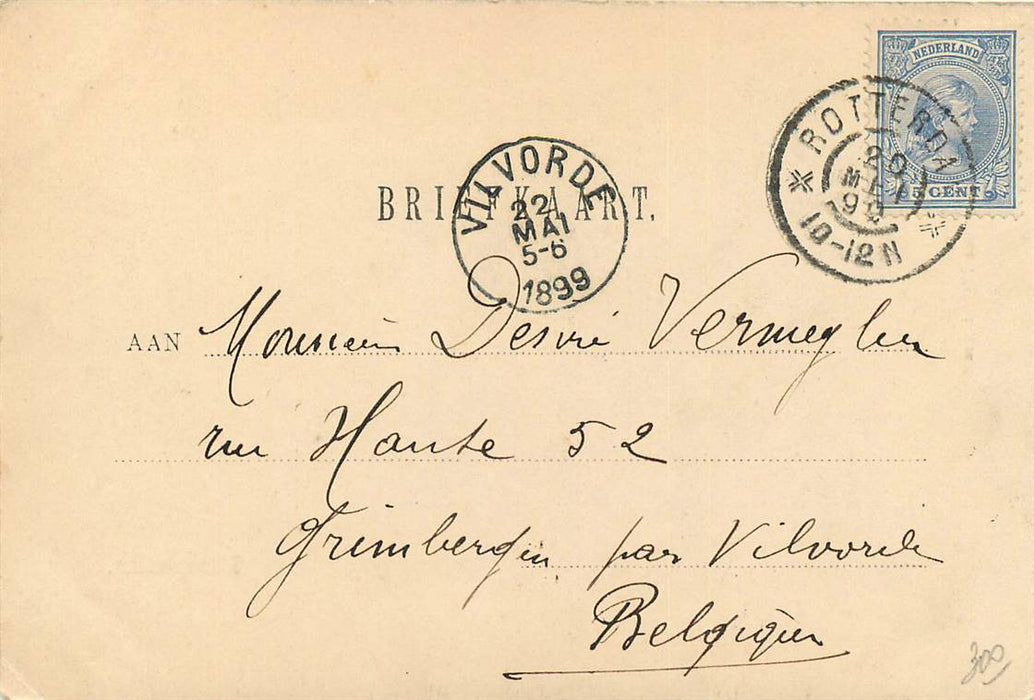 NEDERLAND
5 CENT
ROTTERDA
20
MEI
99
10-12N
VILVORDE
22
MAI
5-6
1899
BRIEFKAART.
AAN Monsieur Desiré Vermeylen
rue Haute 52
Grimbergen par Vilvorde
Belgique
300